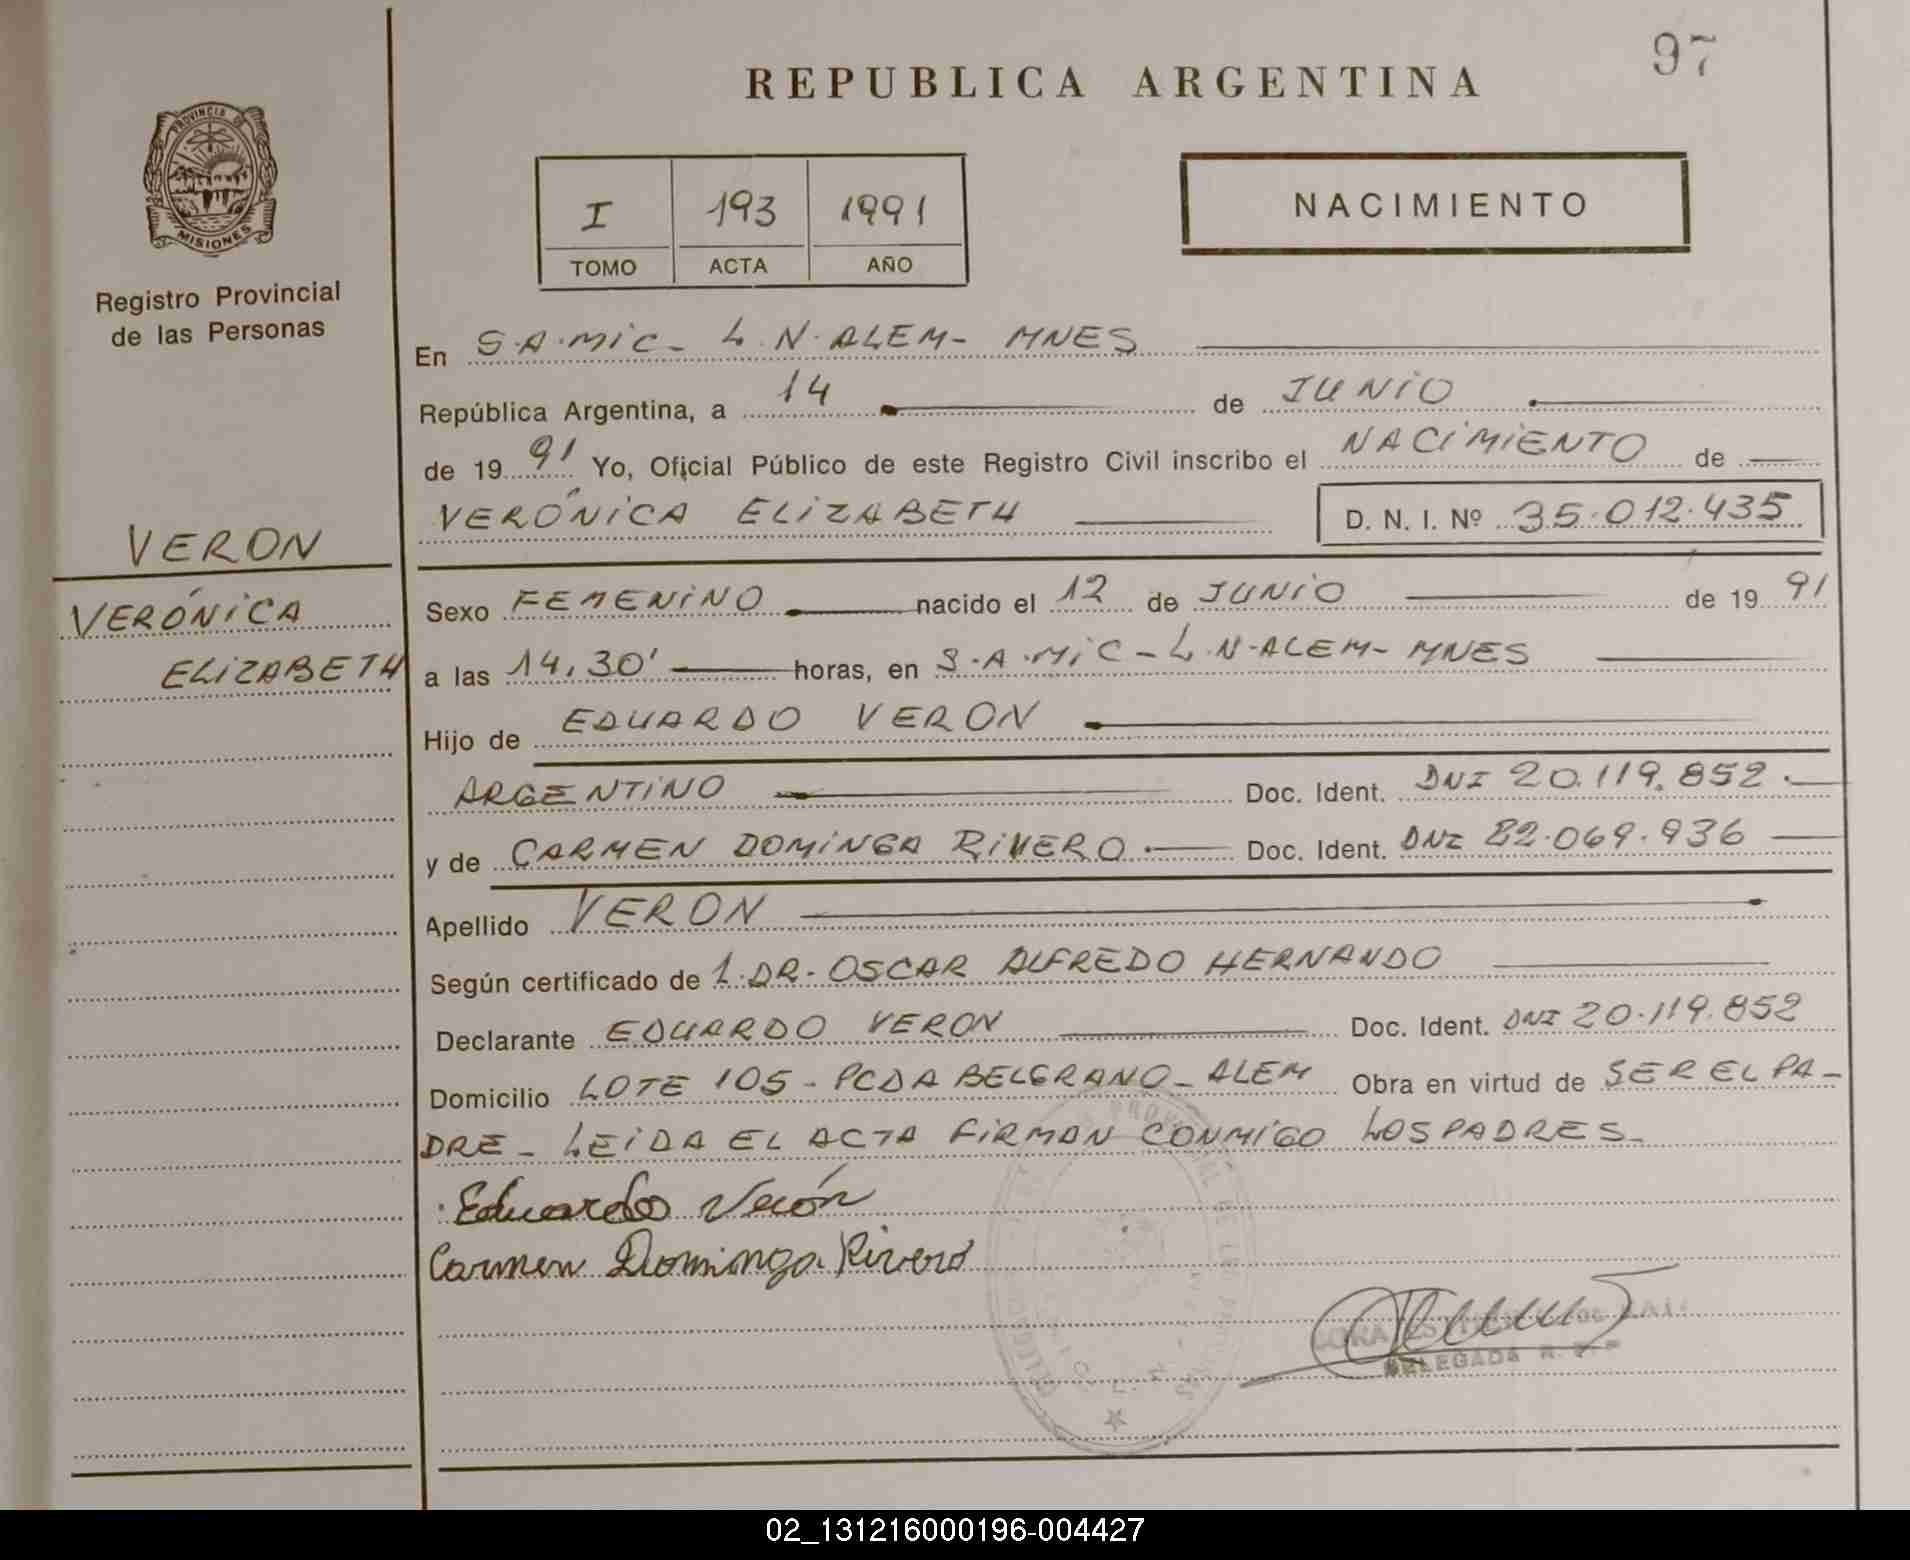 97
REPUBLICA ARGENTINA
PROVINCIA DE
MISIONES
Registro Provincial
de las Personas
I 193 1991
TOMO ACTA AÑO
NACIMIENTO
En S.A.MiC- L.N.ALEM- MNES
República Argentina, a 14 de JUNiO
de 1991 Yo, Oficial Público de este Registro Civil inscribo el NACiMiENTO de
VERÓNiCA ELiZABETH D. N. I. Nº 35.012.435
VERON
VERÓNiCA
ELiZABETH
Sexo FEMENiNO nacido el 12 de JUNiO de 1991
a las 14,30' horas, en S.A.MiC-L.N-ALEM- MNES
Hijo de EDUARDO VERON
ARGENTiNO Doc. Ident. DNI 20.119.852.
y de CARMEN DOMiNGA RiVERO. Doc. Ident. DNI 22.069.936
Apellido VERON
Según certificado de L.DR. OSCAR ALFREDO HERNANDO
Declarante EDUARDO VERON Doc. Ident. DNI 20.119.852
Domicilio LOTE 105- PCDA BELGRANO- ALEM Obra en virtud de SER EL PA-
DRE- LEiDA EL ACTA FiRMAN CONMiGO LOS PADRES-
Eduardo Verón
Carmen Dominga Rivero
DELEGADA R.P.P
02_131216000196-004427